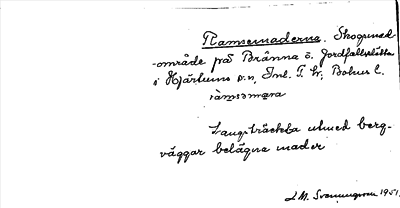 Ramsemaderna. Skogsmad-
område på Brännа ö. Jordfallslätta
i Hjärtums sn, Inl. T. hd, Bohus l.
ràmsəmɑɹa
Langsträckta utmed berg-
väggar belägna mader
J. M. Svenningson 1951.